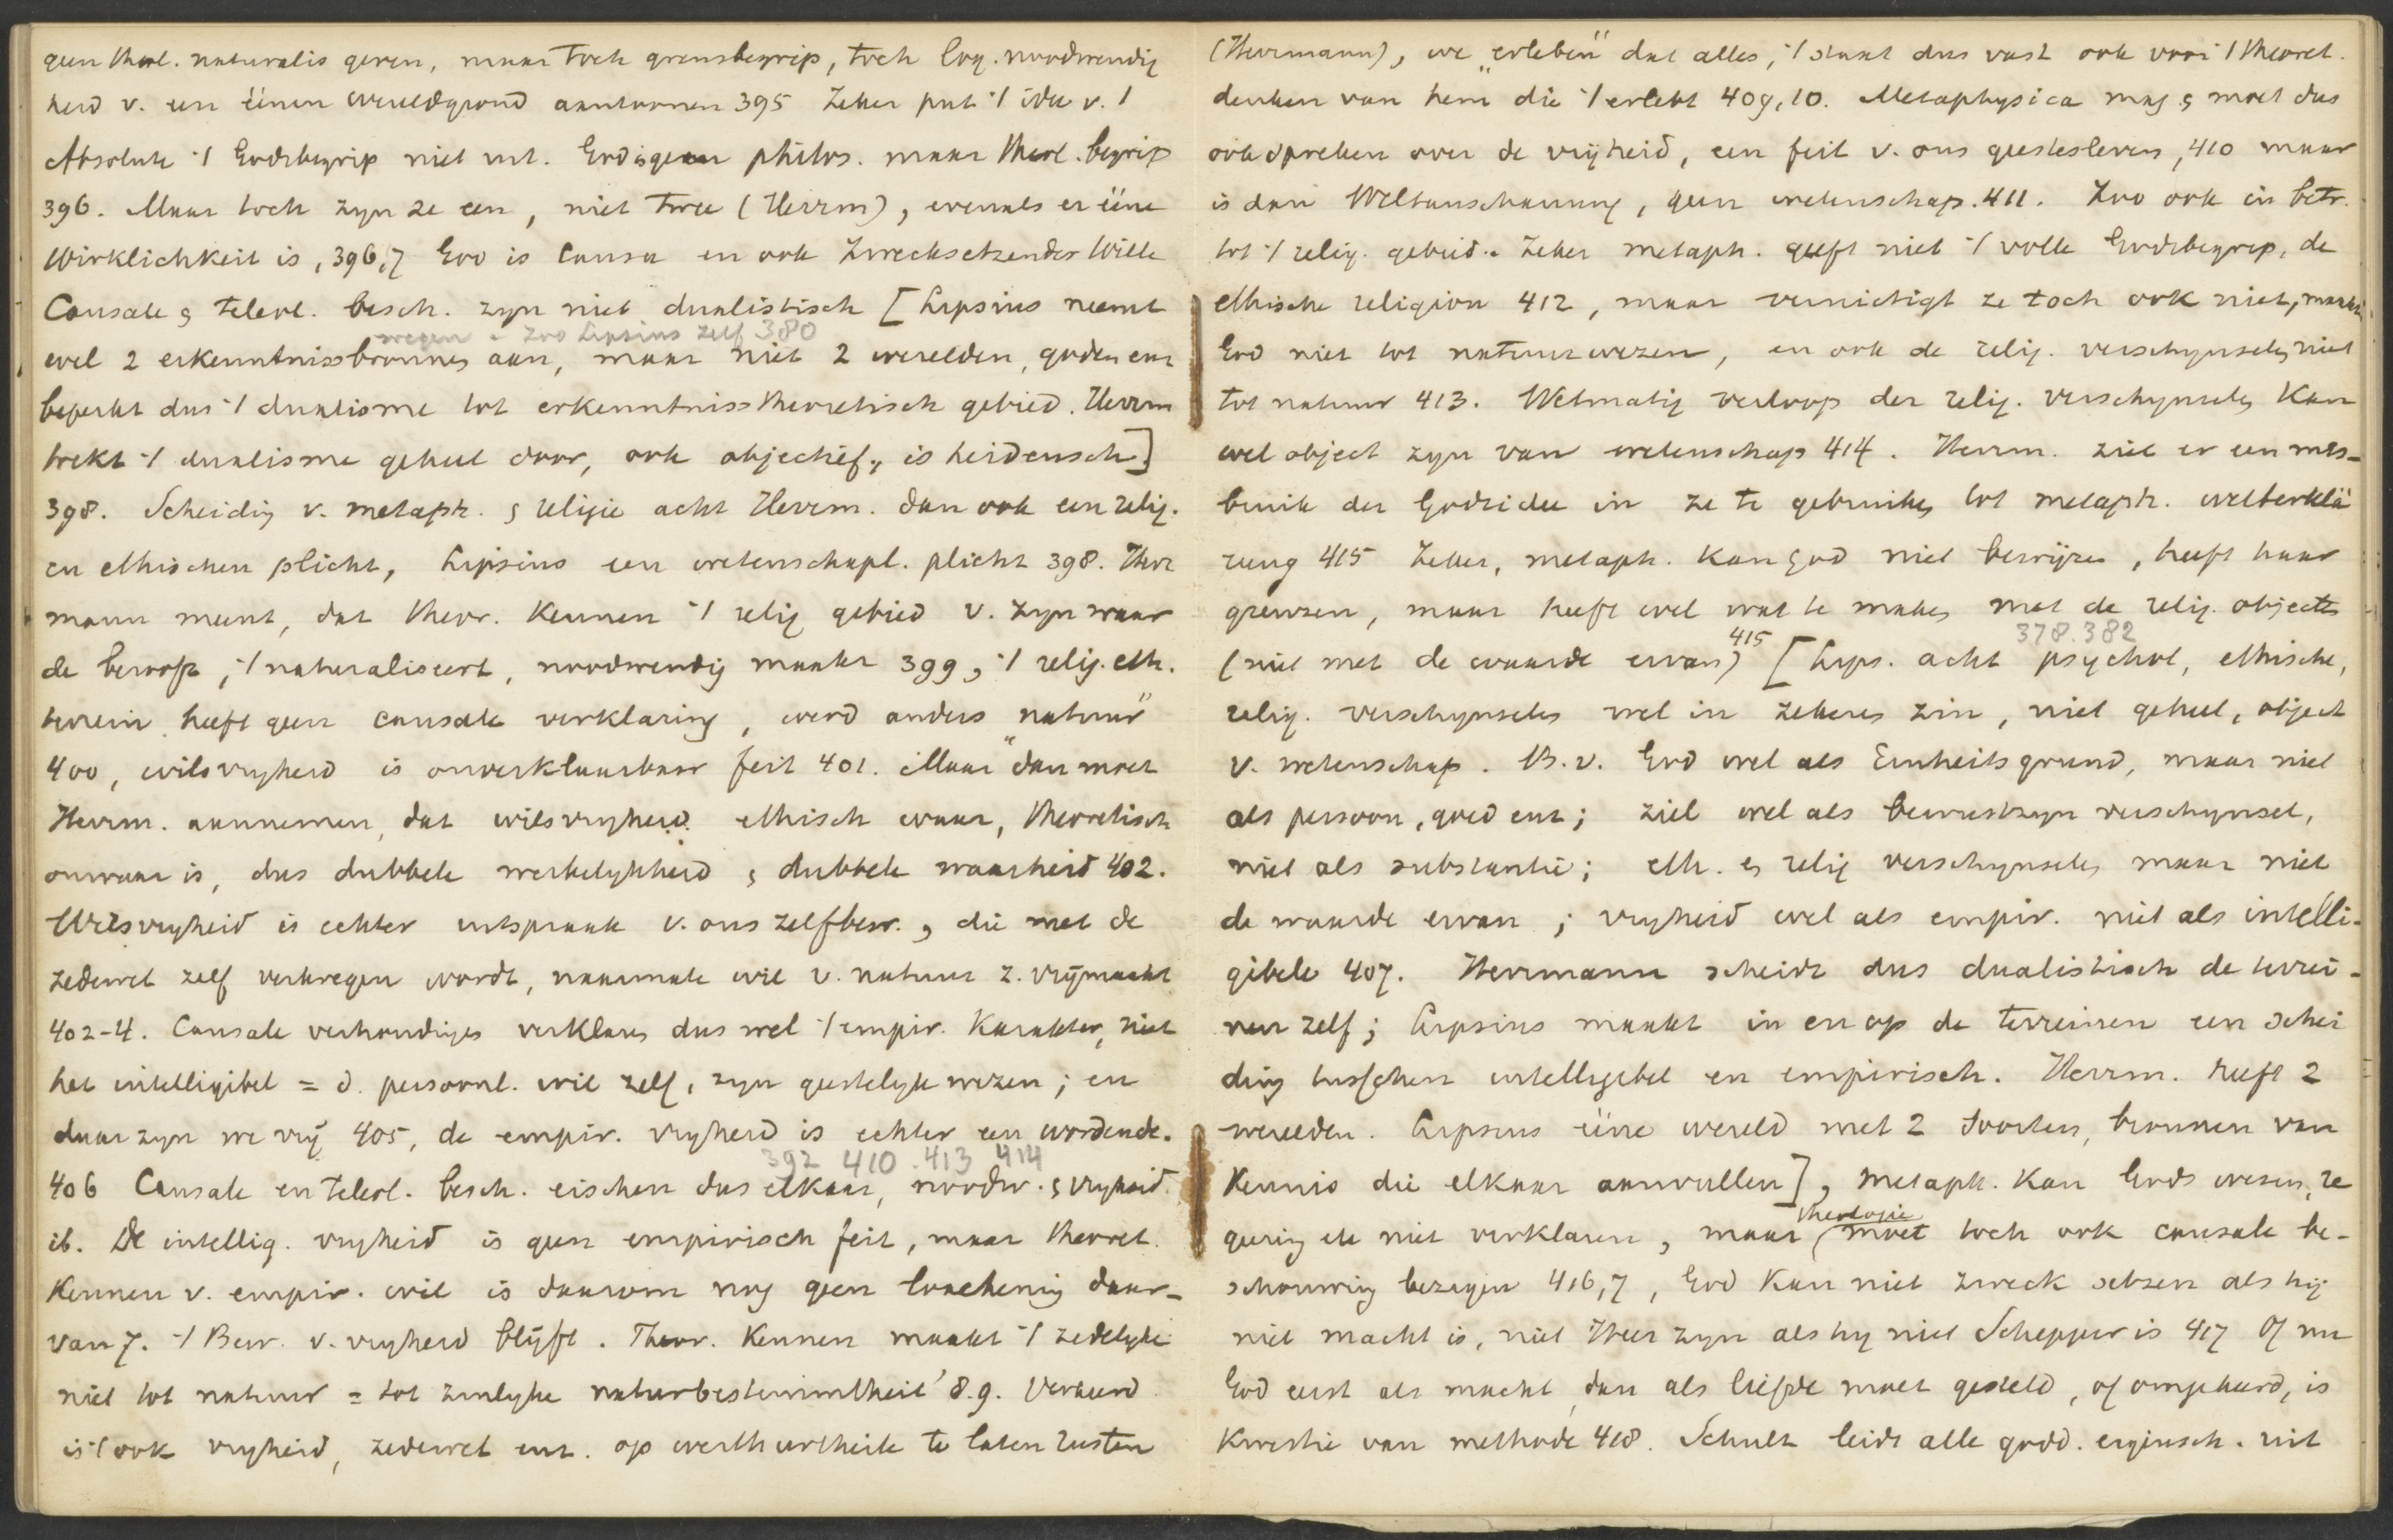 geen theol. naturalis geven, maar toch grensbegrip, toch log. noodwendig
heid v. een éénen wereldgrond aantoonen 395 Zeker put 't idee v. 't
Absolute 't Godsbegrip niet uit. God is geen philos. maar theol. begrip
396. Maar toch zyn ze een, niet twee (Herrm), evenals er ééne
Wirklichkeit is, 396,7 God is Causa en ook Zwecksetzender Wille
Causale & teleol. besch. zyn niet dualistisch [Lipsius neemt
wegen - Zoo Lipsius zelf 380
wel 2 erkenntnissbronnen aan, maar niet 2 werelden, goden enz
beperkt dus 't dualisme tot erkenntnisstheoretisch gebied. Herrm
trekt 't dualisme geheel door, ook objectief, is heidensch]
398. Scheiding v. metaph. & religie acht Herrm. dan ook een relig.
en ethischen plicht, Lipsius een wetenschapl. plicht 398. Herr
mann meent, dat theor. kennen 't relig gebied v. zyn waar
de berooft, 't naturaliseert, noodwendig maakt 399, 't relig. eth.
terrein heeft geen causale verklaring, werd anders „natuur"
400, wilsvryheid is onverklaarbaar feit 401. Maar dan moet
Herrm. aannemen, dat wilsvryheid ethisch waar, theoretisch
onwaar is, dus dubbele werkelykheid & dubbele waarheid 402.
Wilsvryheid is echter uitspraak v. ons zelfbew., die met de
zedewet zelf verkregen wordt, naarmate wil v. natuur z. vrijmaakt
402-4. Causale verhoudinges verklaren dus wel 't empir. karakter, niet
het intelligibel = d. persoonl. wil zelf, zyn geestelyk wezen; en
daar zyn we vrij 405, de empir. vryheid is echter een wordende.
392 410 . 413 414
406 Causale en teleol. besch. eischen dus elkaar, noodw. & vryheid.
ib. De intellig. vryheid is geen empirisch feit, maar theoret.
kennen v. empir. wil is daarom nog geen loochening daar-
van 7. 't Bew. v. vryheid blijft. Theor. Kennen maakt 't zedelyke
niet tot natuur = tot zinlyke naturbestimmtheit 8.9. Verkeerd
is 't ook vryheid, zedewet enz. op werthurtheile te laten rusten
(Herrmann), we „erleben" dat alles, 't staat dus vast ook voor 't theoret.
denken van hem die 't erlebt 409,10. Metaphysica mag & moet dus
ook spreken over de vrijheid, een feit v. ons geestesleven, 410 maar
is dan Weltanschauung, geen wetenschap. 411. Zoo ook in betr.
tot 't relig. gebied. Zeker metaph. geeft niet 't volle Godsbegrip, de
ethische religion 412, maar vernietigt ze toch ook niet, maakt
God niet tot natuurwezen, en ook de relig. verschynselen niet
tot natuur 413. Wetmatig verloop der relig. verschynselen kan
wel object zyn van wetenschap 414. Herrm. ziet er een mis-
bruik der Godsidee in ze te gebruiken tot metaph. welterklä
rung 415 Zeker, metaph. kan God niet bewijzen, heeft haar
grenzen, maar heeft wel wat te maken met de relig. objecten
378.382
(niet met de waarde ervan) 415 [Lips. acht psychol, ethische,
relig. verschynselen wel in zekeren zin, niet geheel, object
v. wetenschap. B.v. God wel als Einheitsgrund, maar niet
als persoon, goed enz; ziel wel als bewustzyn verschynsel,
niet als substantie; eth. en relig verschynselen maar niet
de waarde ervan; vryheid wel als empir. niet als intelli-
gibele 407. Herrmann scheidt dus dualistisch de terrei-
nen zelf; Lipsius maakt in en op de terreinen een schei
ding tusschen intelligibel en empirisch. Herrm. heeft 2
werelden. Lipsius ééne wereld met 2 soorten, bronnen van
Kennis die elkaar aanvullen], metaph. kan Gods wezen, re
theologie
geering etc niet verklaren, maar moet toch ook causale be-
schouwing bezigen 416,7, God kan niet zweck setzen als hij
niet macht is, niet Heer zyn als hy niet Schepper is 417 Of nu
God eerst als macht, dan als liefde moet gesteld, of omgekeerd, is
kwestie van methode 418. Schult leidt alle godd. eigensch. uit